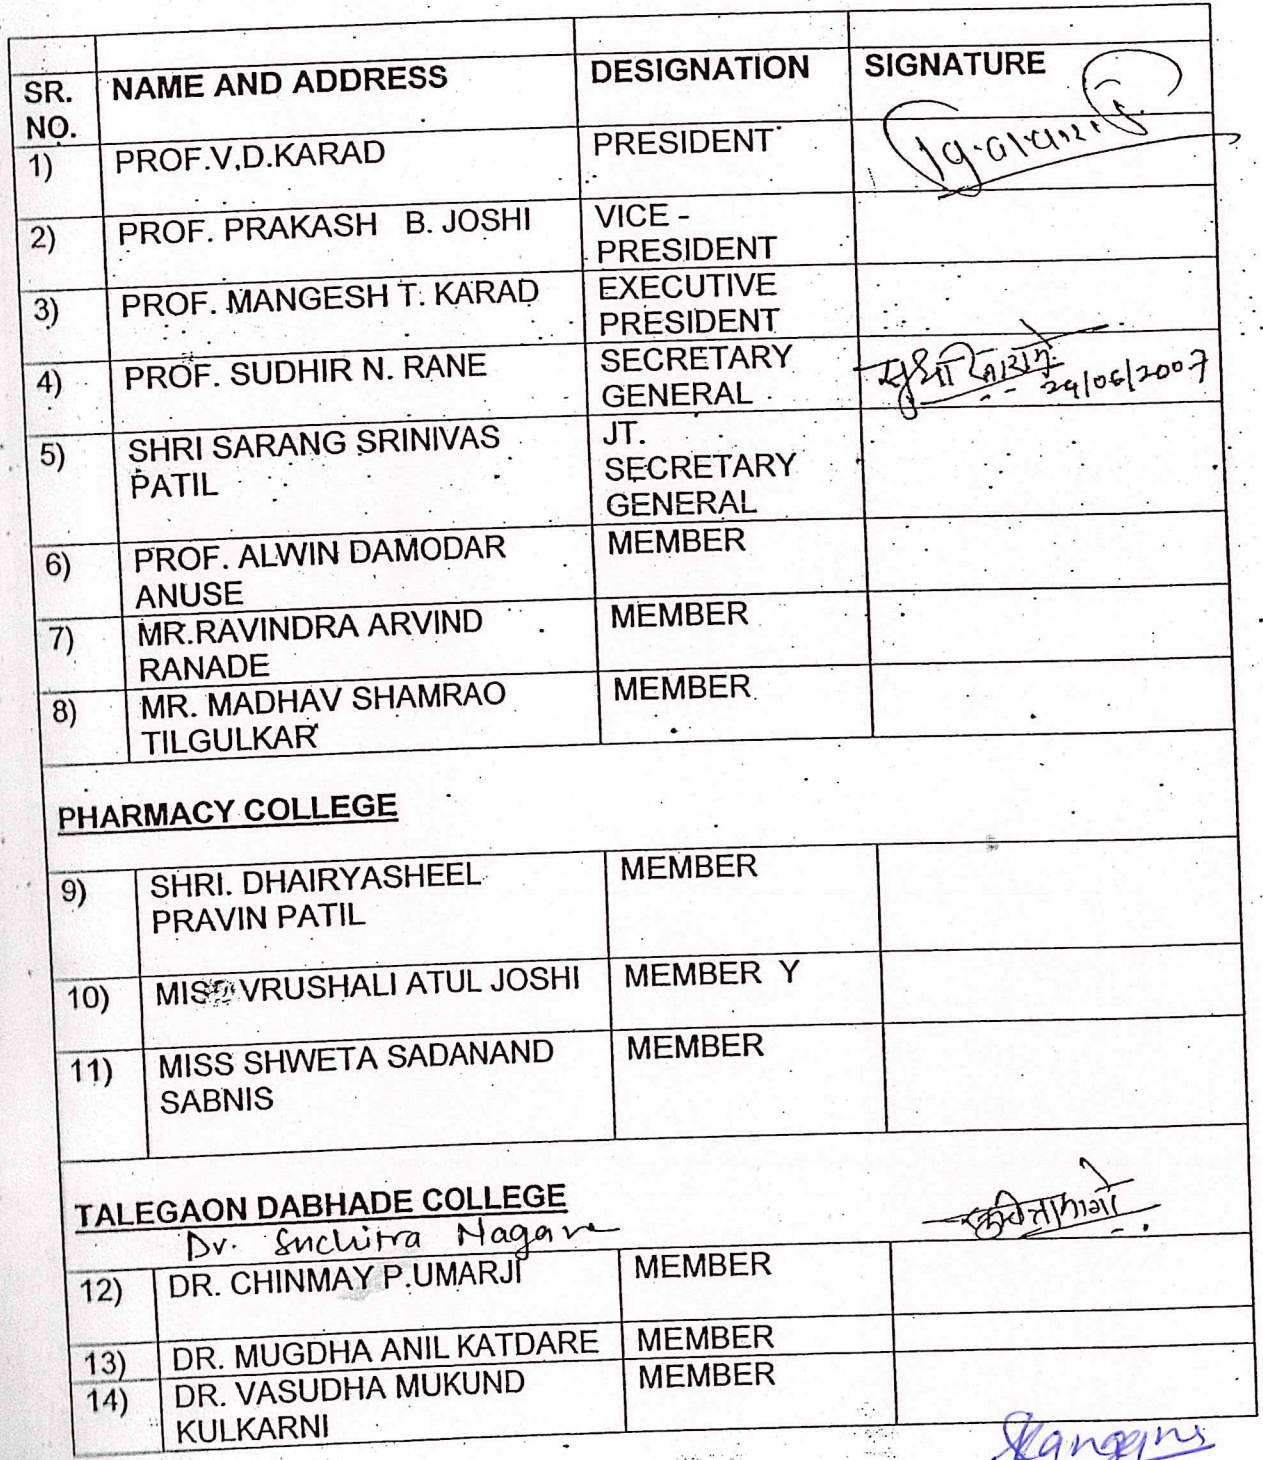 SR. NO. NAME AND ADDRESS DESIGNATION SIGNATURE
1) PROF.V.D.KARAD PRESIDENT
2) PROF. PRAKASH B. JOSHI VICE -
PRESIDENT
3) PROF. MANGESH T. KARAD EXECUTIVE
PRESIDENT
4) PROF. SUDHIR N. RANE SECRETARY
GENERAL
29/06/2007
5) SHRI SARANG SRINIVAS
PATIL
JT.
SECRETARY
GENERAL
6) PROF. ALWIN DAMODAR
ANUSE
MEMBER
7) MR.RAVINDRA ARVIND
RANADE
MEMBER
8) MR. MADHAV SHAMRAO
TILGULKAR
MEMBER
PHARMACY COLLEGE
9) SHRI. DHAIRYASHEEL
PRAVIN PATIL
MEMBER
10) MISS VRUSHALI ATUL JOSHI MEMBER Y
11) MISS SHWETA SADANAND
SABNIS
MEMBER
TALEGAON DABHADE COLLEGE
Dr. Suchitra Nagare
12) DR. CHINMAY P.UMARJI MEMBER
13) DR. MUGDHA ANIL KATDARE MEMBER
14) DR. VASUDHA MUKUND
KULKARNI
MEMBER